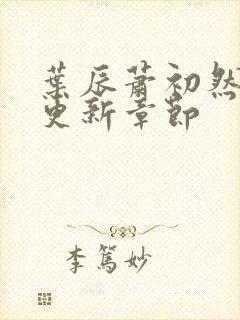 葉辰蕭初然
更新章節
李篤妙